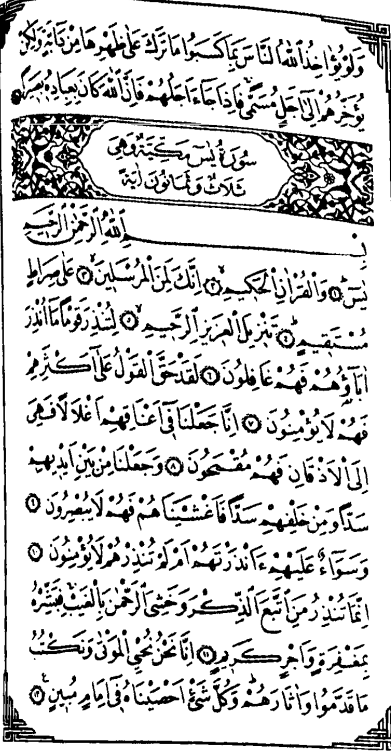 وَلَوْ يُؤَاخِذُ اللّٰهُ النَّاسَ بِمَا كَسَبُوا مَا تَرَكَ عَلٰى ظَهْرِهَا مِنْ دَابَّةٍ وَلٰكِنْ
يُؤَخِّرُهُمْ اِلٰٓى اَجَلٍ مُسَمًّى فَاِذَا جَاءَ اَجَلُهُمْ فَاِنَّ اللّٰهَ كَانَ بِعِبَادِهٖ بَصٖيرًا
سُورَةُ يٰسٓ مَكِّيَّةٌ وَهِيَ
ثَلَاثٌ وَثَمَانُونَ اٰيَةً
بِسْمِ اللّٰهِ الرَّحْمٰنِ الرَّحٖيمِ
يٰسٓ ﴿١﴾ وَالْقُرْاٰنِ الْحَكٖيمِ ﴿٢﴾ اِنَّكَ لَمِنَ الْمُرْسَلٖينَ ﴿٣﴾ عَلٰى صِرَاطٍ
مُسْتَقٖيمٍ ﴿٤﴾ تَنْزٖيلَ الْعَزٖيزِ الرَّحٖيمِ ﴿٥﴾ لِتُنْذِرَ قَوْمًا مَا اُنْذِرَ
اٰبَاؤُهُمْ فَهُمْ غَافِلُونَ ﴿٦﴾ لَقَدْ حَقَّ الْقَوْلُ عَلٰٓى اَكْثَرِهِمْ
فَهُمْ لَا يُؤْمِنُونَ ﴿٧﴾ اِنَّا جَعَلْنَا فٖٓى اَعْنَاقِهِمْ اَغْلَالًا فَهِىَ
اِلَى الْاَذْقَانِ فَهُمْ مُقْمَحُونَ ﴿٨﴾ وَجَعَلْنَا مِنْ بَيْنِ اَيْدٖيهِمْ
سَدًّا وَمِنْ خَلْفِهِمْ سَدًّا فَاَغْشَيْنَاهُمْ فَهُمْ لَا يُبْصِرُونَ ﴿٩﴾
وَسَوَٓاءٌ عَلَيْهِمْ ءَاَنْذَرْتَهُمْ اَمْ لَمْ تُنْذِرْهُمْ لَا يُؤْمِنُونَ ﴿١٠﴾
اِنَّمَا تُنْذِرُ مَنِ اتَّبَعَ الذِّكْرَ وَخَشِىَ الرَّحْمٰنَ بِالْغَيْبِ فَبَشِّرْهُ
بِمَغْفِرَةٍ وَاَجْرٍ كَرٖيمٍ ﴿١١﴾ اِنَّا نَحْنُ نُحْيِ الْمَوْتٰى وَنَكْتُبُ
مَا قَدَّمُوا وَاٰثَارَهُمْ وَكُلَّ شَىْءٍ اَحْصَيْنَاهُ فٖٓى اِمَامٍ مُبٖينٍ ﴿١٢﴾